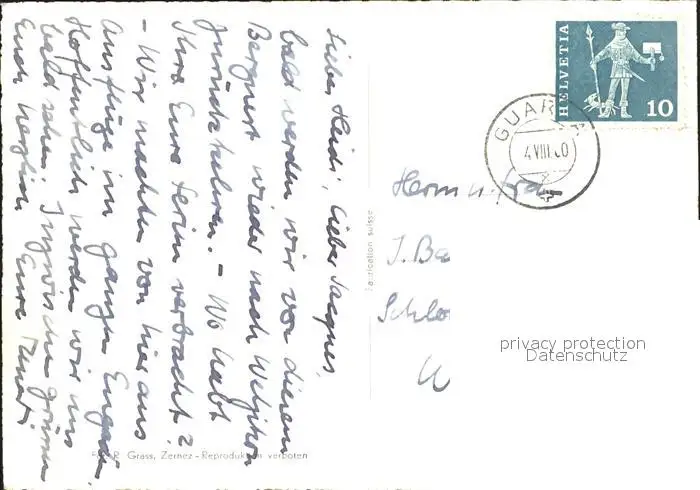 Liebe Heidi, lieber Jacques,
bald werden wir von diesem
Bergnest wieder nach
zurückkehren. - Wo habt
Ihr Eure Ferien verbracht?
- Wir machten von hier aus
Ausflüge im ganzen Engadin.
Hoffentlich werden wir uns
bald sehen. Inzwischen grüssen
Euch herzlich Eure
R. Grass, Zernez - Reproduktion verboten
Fabrication suisse
HELVETIA
10
GUARDA
4.VIII.60
Herrn u.
J. Ba
Schlo
W
privacy protection
Datenschutz